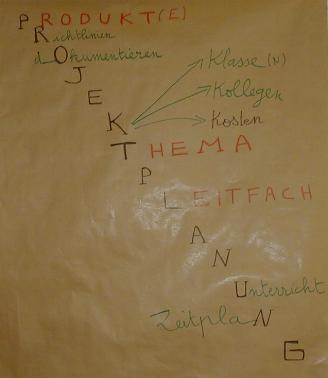 PRODUKT(E)
Richtlinien
dOkumentieren
J
E
Klasse(N)
Kollegen
K Kosten
THEMA
P
LEITFACH
A
N
Unterricht
ZeitplaN
G